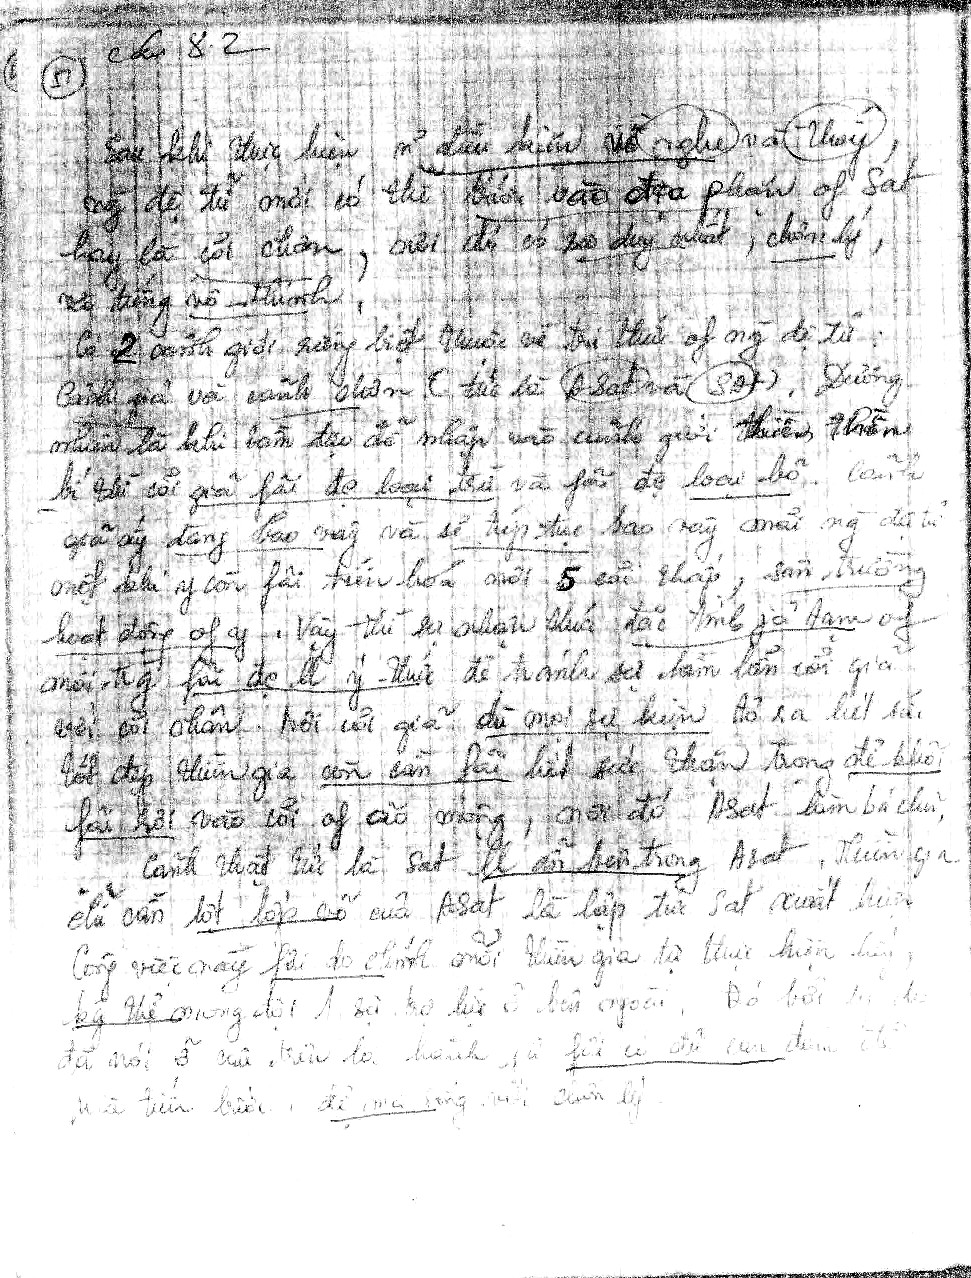 5)
câu 8.2
Sau khi thực hiện n' điều kiện về nghe và thấy,
ng đệ tử mới có thể bước vào địa phận of Sat
hay là cõi chân, nơi đó có sự duy nhất, chân lý,
và tiếng vô thinh.
Có 2 cảnh giới riêng biệt thuộc về tri thức of ng đệ tử:
Cảnh giả và cảnh chân (tức là ASat và Sat). Đương
nhiên là khi toan tạo để nhập vào cảnh giới thiêng thần
bí thì cõi giả fải đc loại trừ và fải đc loại bỏ. Cảnh
giả ấy đang bao vây và sẽ tiếp tục bao vây mỗi ng đệ tử
một khi y còn fải tiến hoá nơi 5 cõi thấp, sân trường
hoạt động of y. Vậy thì sự nhận thức đặc tính of
mỗi fải đc ý thức để tránh sự lầm lẫn cõi giả
với cõi chân. Nơi cõi giả dù mọi sự kiện tỏ ra hết sức
tốt đẹp thiền gia còn cần fải hết sức thận trọng để khỏi
fải rơi vào cõi of ảo mộng, nơi đó ASat làm bá chủ.
Cảnh thật tức là Sat ẩn bên trong ASat. Thiền gia
chỉ cần lột lớp vỏ của ASat là lập tức Sat xuất hiện
Công việc này fải do chính mỗi thiền gia tự thực hiện lấy,
kg thể mong đợi 1 sự trợ lực ở bên ngoài. Đó bởi lý do
đã nói ở câu trên fải có đủ can đảm để
mà tiến bước, để mà sống với chân lý.